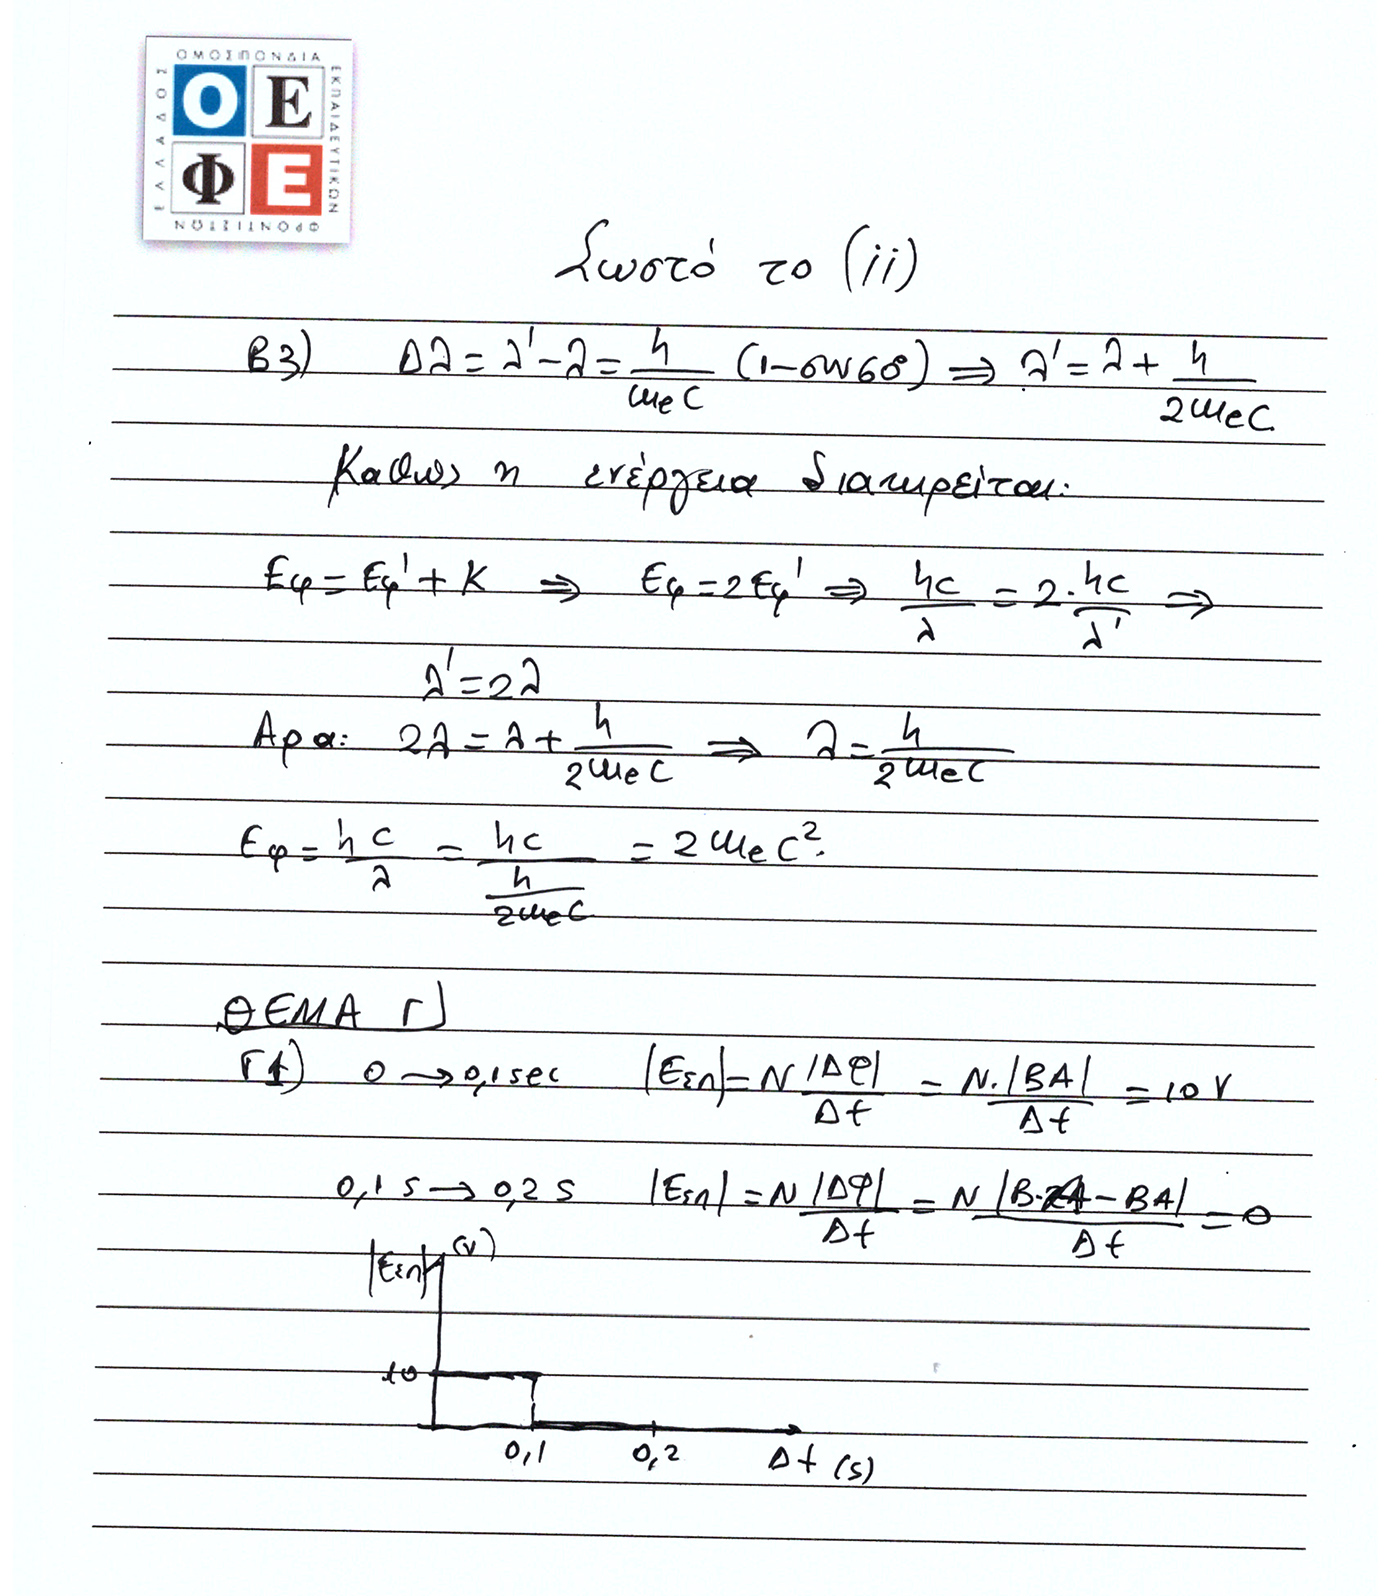 ΟΜΟΣΠΟΝΔΙΑ
ΕΚΠΑΙΔΕΥΤΙΚΩΝ
ΦΡΟΝΤΙΣΤΩΝ
ΕΛΛΑΔΟΣ
Ο Ε
Φ Ε
Σωστό το (ii)
Β3) Δλ = λ' - λ = h/(meC) (1-συν60°) ⇒ λ' = λ + h/(2meC)
Καθώς η ενέργεια διατηρείται:
Εφ = Εφ' + Κ ⇒ Εφ = 2Εφ' ⇒ hc/λ = 2·hc/λ' ⇒
λ' = 2λ
Αρα: 2λ = λ + h/(2meC) ⇒ λ = h/(2meC)
Εφ = hc/λ = hc/(h/(2meC)) = 2meC².
ΘΕΜΑ Γ
Γ1) 0 → 0,1sec |Εεπ| = N |Δφ|/Δt = N·|BA|/Δt = 10 V
0,1 s → 0,2 s |Εεπ| = N |Δφ|/Δt = N |B·A - BA|/Δt = 0
|Εεπ| (V)
10
0,1 0,2 Δt (s)